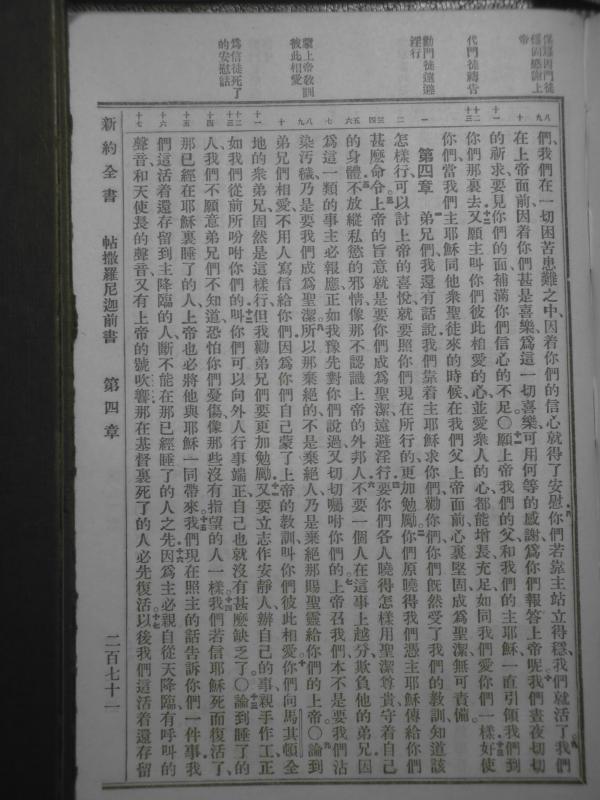 保羅因門徒
信固感謝上
帝
代門徒禱告
勸門徒遠避
淫行
蒙上帝教訓
彼此相愛
爲信徒死了
的安慰話
們、我們在一切困苦患難之中、因着你們的信心就得了安慰你們若靠主站立得穩、我們就活了我們
在上帝面前、因着你們甚是喜樂、爲這一切喜樂、可用何等的感謝、爲你們報答上帝呢我們晝夜切切
的祈求、要見你們的面、補滿你們信心的不足○願上帝我們的父、和我們的主耶穌、一直引領我們到
你們那裏去又願主叫你們彼此相愛的心、並愛衆人的心、都能增長充足、如同我們愛你們一樣好使
你們當我們主耶穌同他衆聖徒來的時候、在我們父上帝面前、心裏堅固、成爲聖潔、無可責備
第四章 弟兄們、我還有話說我們靠着主耶穌求你們、勸你們、你們既然受了我們的教訓、知道該
怎樣行、可以討上帝的喜悅、就要照你們現在所行的、更加勉勵你們原曉得我們憑主耶穌傳給你們
甚麼命令上帝的旨意、就是要你們成爲聖潔、遠避淫行要你們各人曉得怎樣用聖潔尊貴、守着自己
的身體不放縱私慾的邪情、像那不認識上帝的外邦人不要一個人在這事上越分、欺負他的弟兄因
爲這一類的事、主必報應、正如我豫先對你們說過、又切切囑咐你們的上帝召我們、本不是要我們沾
染汚穢、乃是要我們成爲聖潔所以那棄絕的、不是棄絕人、乃是棄絕那賜聖靈給你們的上帝○論到
弟兄們相愛、不用人寫信給你們因爲你們自己蒙了上帝的教訓、叫你們彼此相愛你們向馬其頓全
地的衆弟兄、固然是這樣行但我勸弟兄們要更加勉勵又要立志作安靜人、辦自己的事、親手作工、正
如我們從前所吩咐你們的叫你們可以向外人行事端正、自己也就沒有甚麼缺乏了○論到睡了的
人、我們不願意弟兄們不知道、恐怕你們憂傷、像那些沒有指望的人一樣我們若信耶穌死而復活了、
那已經在耶穌裏睡了的人、上帝也必將他與耶穌一同帶來我們現在照主的話告訴你們一件事我
們這活着還存留到主降臨的人、斷不能在那已經睡了的人之先因爲主必親自從天降臨、有呼叫的
聲音、和天使長的聲音、又有上帝的號吹響那在基督裏死了的人必先復活以後我們這活着還存留
新約全書 帖撒羅尼迦前書 第四章 二百七十一